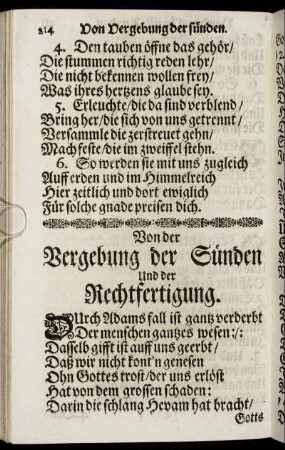 214. Von Vergebung der sünden.
4. Den tauben öffne das gehör/
Die stummen richtig reden lehr/
Die nicht bekennen wollen frey/
Was ihres hertzens glaube sey.
5. Erleuchte/die da sind verblend/
Bring her/die sich von uns getrennt/
Versammle die zerstreuet gehn/
Mach feste/die im zweiffel stehn.
6. So werden sie mit uns zugleich
Auff erden und im Himmelreich
Hier zeitlich und dort ewiglich
Für solche gnade preisen dich.
Von der
Vergebung der Sünden
Und der
Rechtfertigung.
DUrch Adams fall ist gantz verderbt
Der menschen gantzes wesen:/:
Dasselb gifft ist auff uns geerbt/
Daß wir nicht kont'n genesen
Ohn Gottes trost/der uns erlöst
Hat von dem grossen schaden:
Darin die schlang Hevam hat bracht/
Gotts